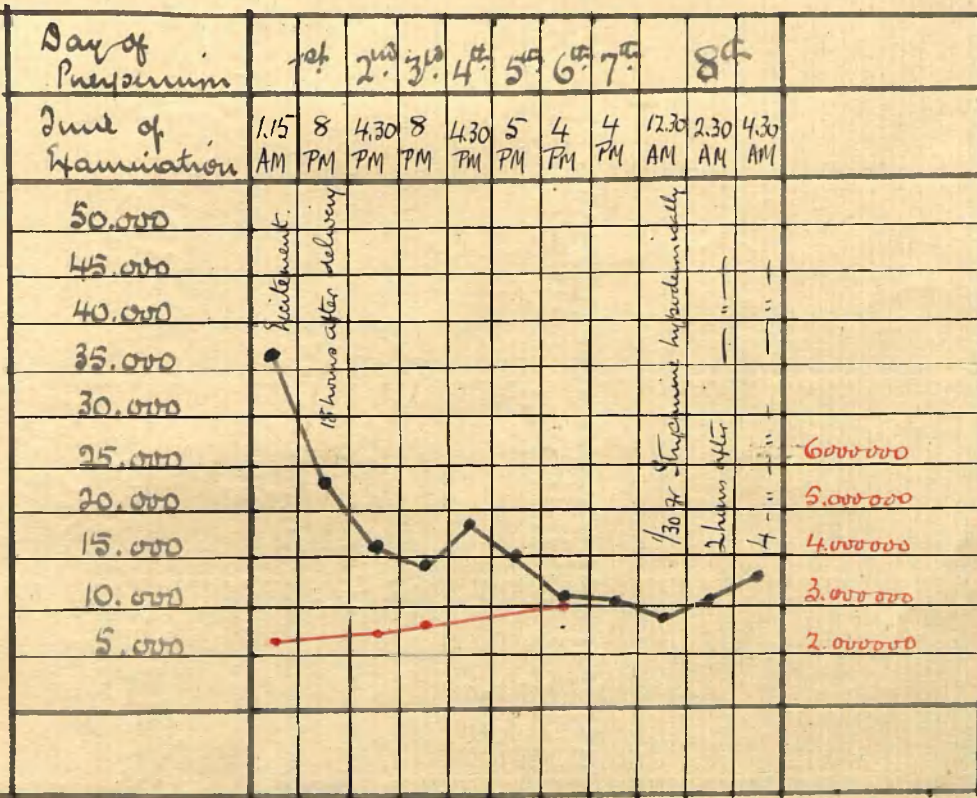 Day of
Puerperium 1st 2nd 3rd 4th 5th 6th 7th 8th
Time of
Examination 1.15 AM 8 PM 4.30 PM 8 PM 4.30 PM 5 PM 4 PM 4 PM 12.30 AM 2.30 AM 4.30 AM
50.000
45.000
40.000
35.000
30.000
25.000
20.000
15.000
10.000
5.000
Excitement.
18 hours after delivery
1/30 gr Strychnine hypodermically
2 hours after — " —
4 - " - - " - — " —
6000000
5.000000
4.000000
3.000000
2.000000